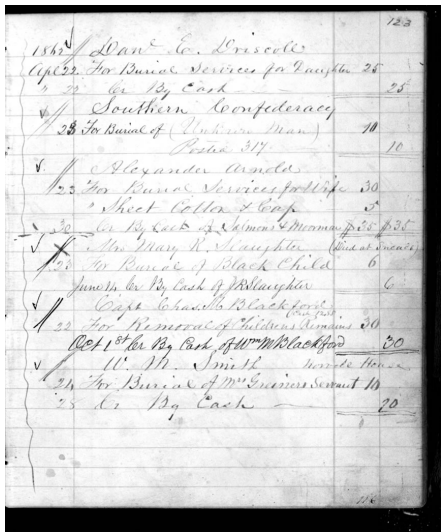 123
1862 // Danl E. Driscoll
Apl 22. For Burial Services for Daughter 25
" 22 Cr By Cash 25
Southern Confederacy
// 23 For Burial of (Unknown Man) 10
Posted 317. 10
// Alexander Arnold
23 For Burial Services for Wife 30
" Sheet Cotton & Cap 5
30 Cr By Cash of & Moorman $35 $35
// Mrs Mary R. Slaughter (Died at
23 For Burial of Black Child 6
June 14 Cr By Cash of J R Slaughter 6
// Capt Chas. M. Blackford
22 For Removal of Childrens Remains 30
Oct 1st Cr By Cash of Wm M Blackford 30
// W. M. Smith Norvell House
24 For Burial of Mrs Greiners Servant 10
28 Cr By Cash 20
116